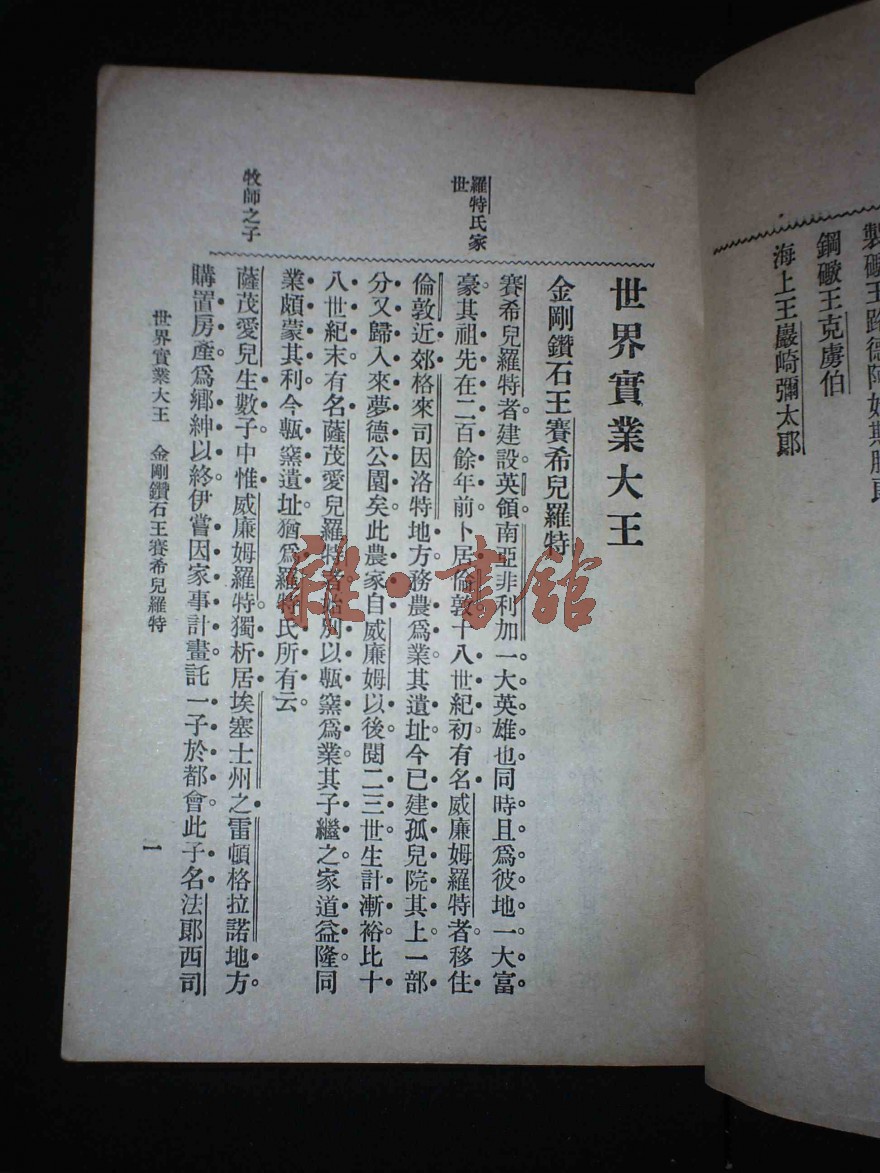 製礮王路德
鋼礮王克虜伯
海上王巖崎彌太郎
世界實業大王
金剛鑽石王賽希兒羅特
羅特氏家世
賽希兒羅特者建設英領南亞非利加一大英雄也。同時且爲彼地一大富
豪。其祖先在二百餘年前卜居倫敦十八世紀初有名威廉姆羅特者移住
倫敦近郊格來司因洛特地方務農爲業其遺址今已建孤兒院其上一部
分又歸入來夢德公園矣此農家自威廉姆以後。閱二三世生計漸裕比十
八世紀末有名薩茂愛兒羅特者始別以瓻窯爲業其子繼之。家道益隆同
業頗蒙其利今瓻窯遺址。猶爲羅特氏所有云。
牧師之子
薩茂愛兒生數子。中惟威廉姆羅特。獨析居埃塞士州之雷頓格拉諾地方。
購置房產爲鄉紳以終伊嘗因家事計畫託一子於都會。此子名法郎西司
世界實業大王　金剛鑽石王賽希兒羅特
一
雜·書館